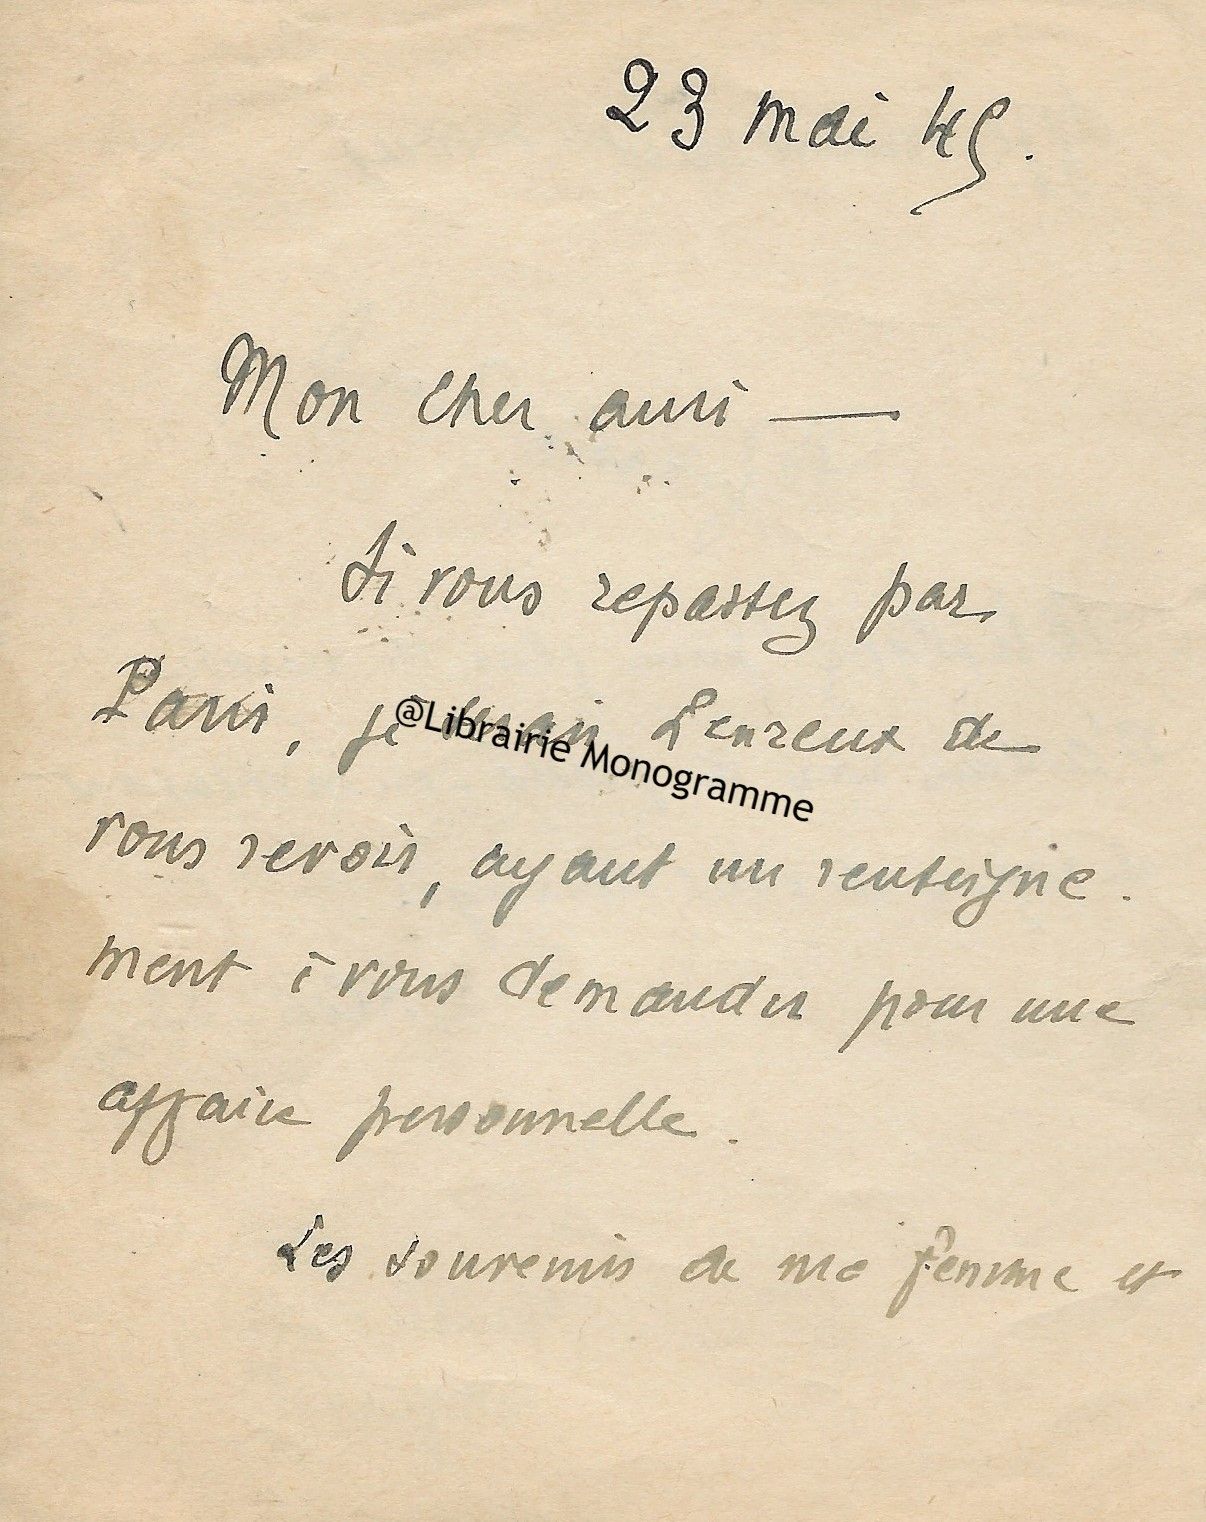 23 mai 45.
Mon cher ami —
Si vous repassez par
Paris, je serais heureux de
@Librairie Monogramme
vous revoir, ayant un renseigne-
ment à vous demander pour une
affaire personnelle.
Les souvenirs de ma femme et